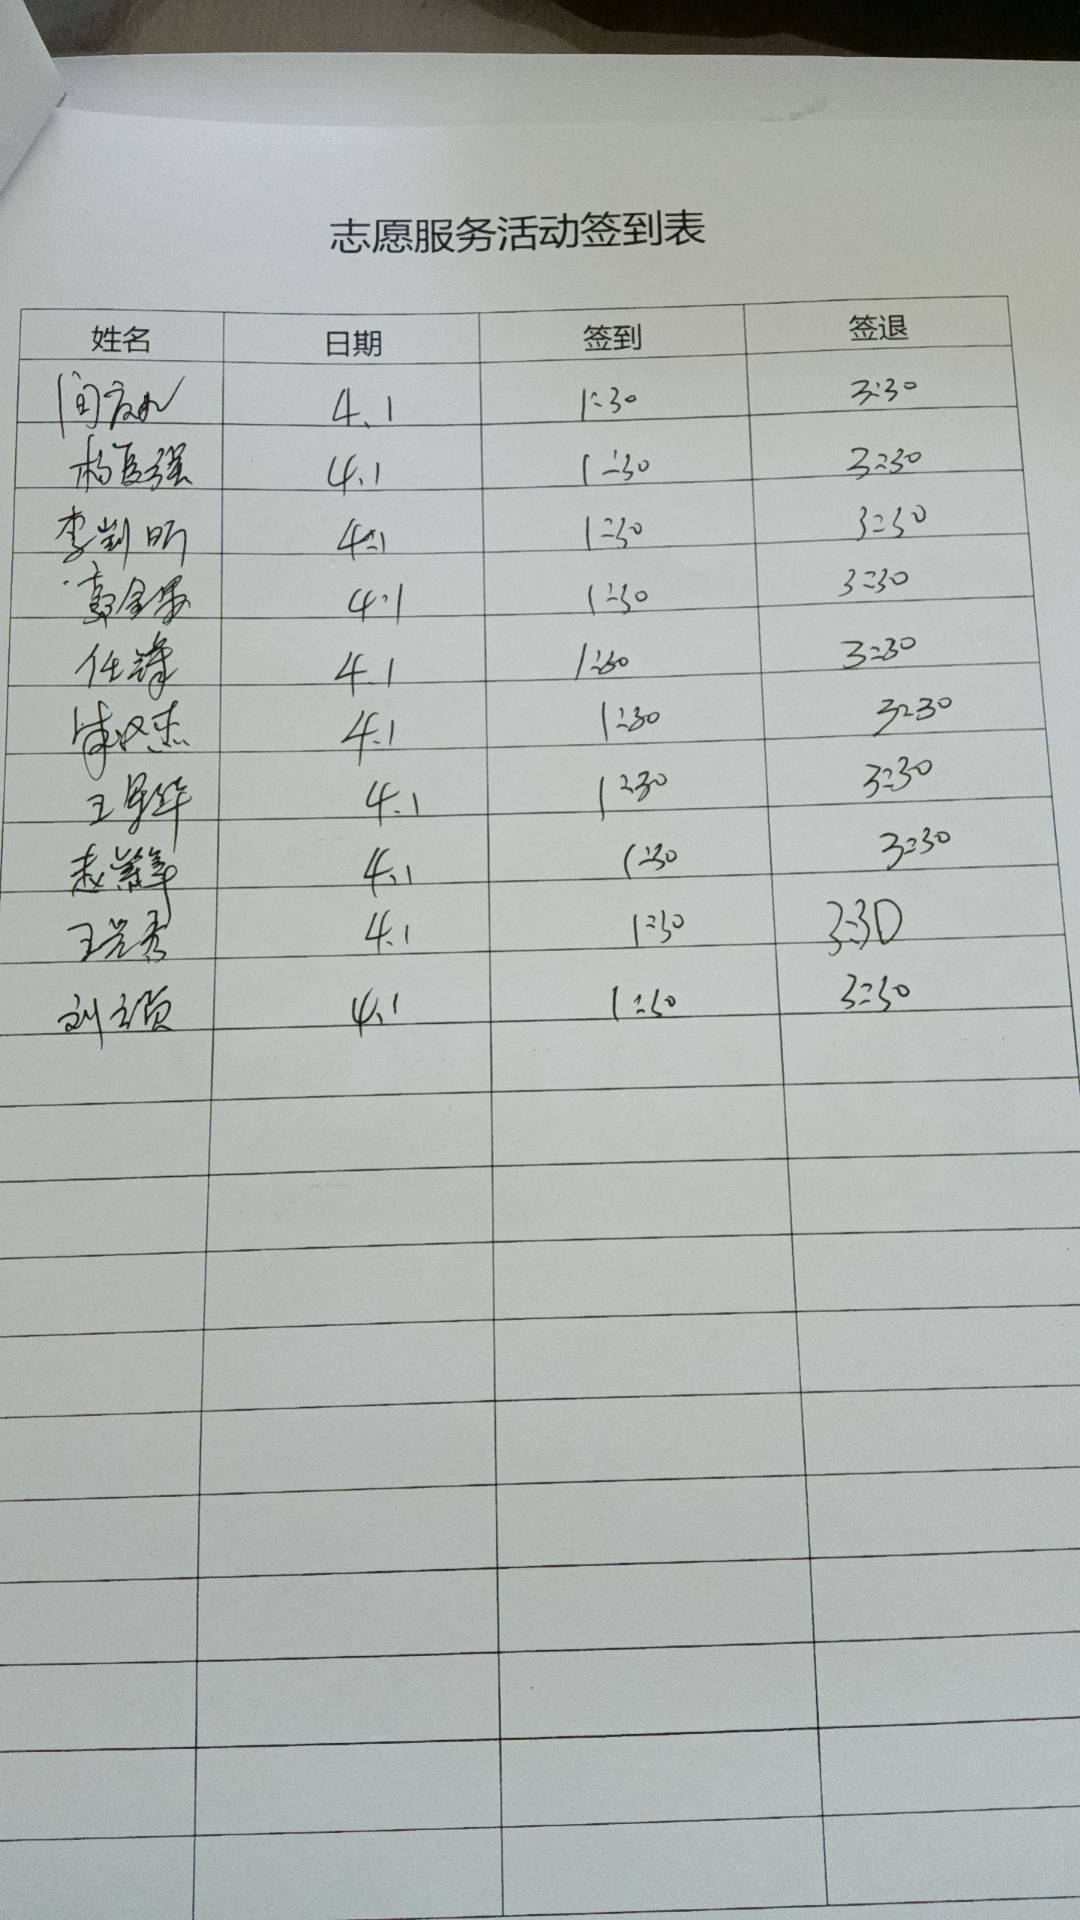 志愿服务活动签到表
姓名 日期 签到 签退
4.1 1:30 3:30
4.1 1:30 3:30
4.1 1:30 3:30
4.1 1:30 3:30
任锋 4.1 1:30 3:30
4.1 1:30 3:30
王 4.1 1:30 3:30
4.1 1:30 3:30
王兰秀 4.1 1:30 3:30
4.1 1:30 3:30